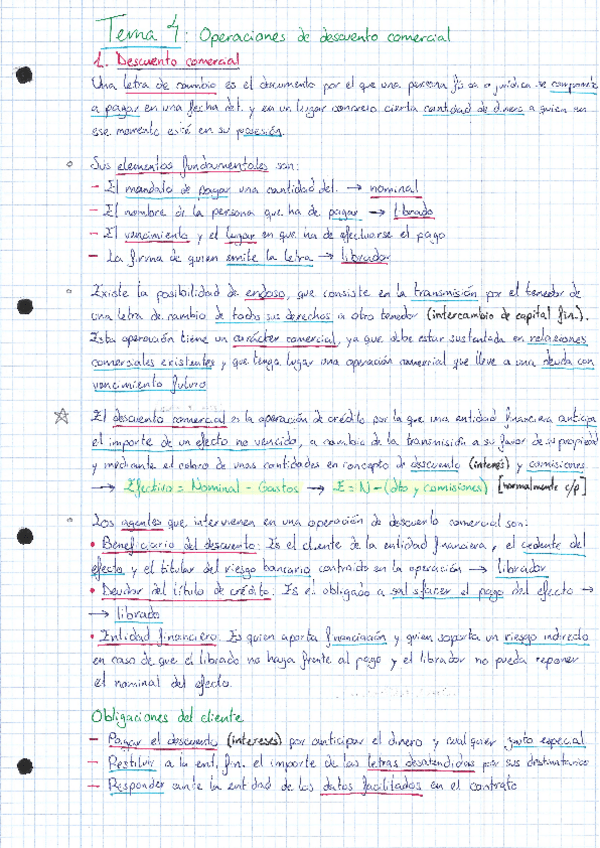 Tema 4: Operaciones de descuento comercial
1. Descuento comercial
Una letra de cambio es el documento por el que una persona física o jurídica se compromete
a pagar en una fecha det. y en un lugar concreto cierta cantidad de dinero a quien en
ese momento esté en su posesión.
Sus elementos fundamentales son:
- El mandato de pagar una cantidad det. → nominal
- El nombre de la persona que ha de pagar → librado
- El vencimiento y el lugar en que ha de efectuarse el pago
- La firma de quien emite la letra → librador
Existe la posibilidad de endoso, que consiste en la transmisión por el tenedor de
una letra de cambio de todos sus derechos a otro tenedor (intercambio de capital fin.).
Esta operación tiene un carácter comercial, ya que debe estar sustentada en relaciones
comerciales existentes y que tenga lugar una operación comercial que lleve a una deuda con
vencimiento futuro
☆ El descuento comercial es la operación de crédito por la que una entidad financiera anticipa
el importe de un efecto no vencido, a cambio de la transmisión a su favor de su propiedad
y mediante el cobro de unas cantidades en concepto de descuento (interés) y comisiones.
→ Efectivo = Nominal - Gastos → E = N - (dto y comisiones) [normalmente c/p]
Los agentes que intervienen en una operación de descuento comercial son:
• Beneficiario del descuento: Es el cliente de la entidad financiera, el cedente del
efecto y el titular del riesgo bancario contraído en la operación → librador
• Deudor del título de crédito: Es el obligado a satisfacer el pago del efecto →
→ librado
• Entidad financiera: Es quien aporta financiación y quien soporta un riesgo indirecto
en caso de que el librado no haga frente al pago y el librador no pueda reponer
el nominal del efecto.
Obligaciones del cliente
- Pagar el descuento (intereses) por anticipar el dinero y cualquier gasto especial
- Restituir a la ent. fin. el importe de las letras desatendidas por sus destinatarios
- Responder ante la entidad de los datos facilitados en el contrato